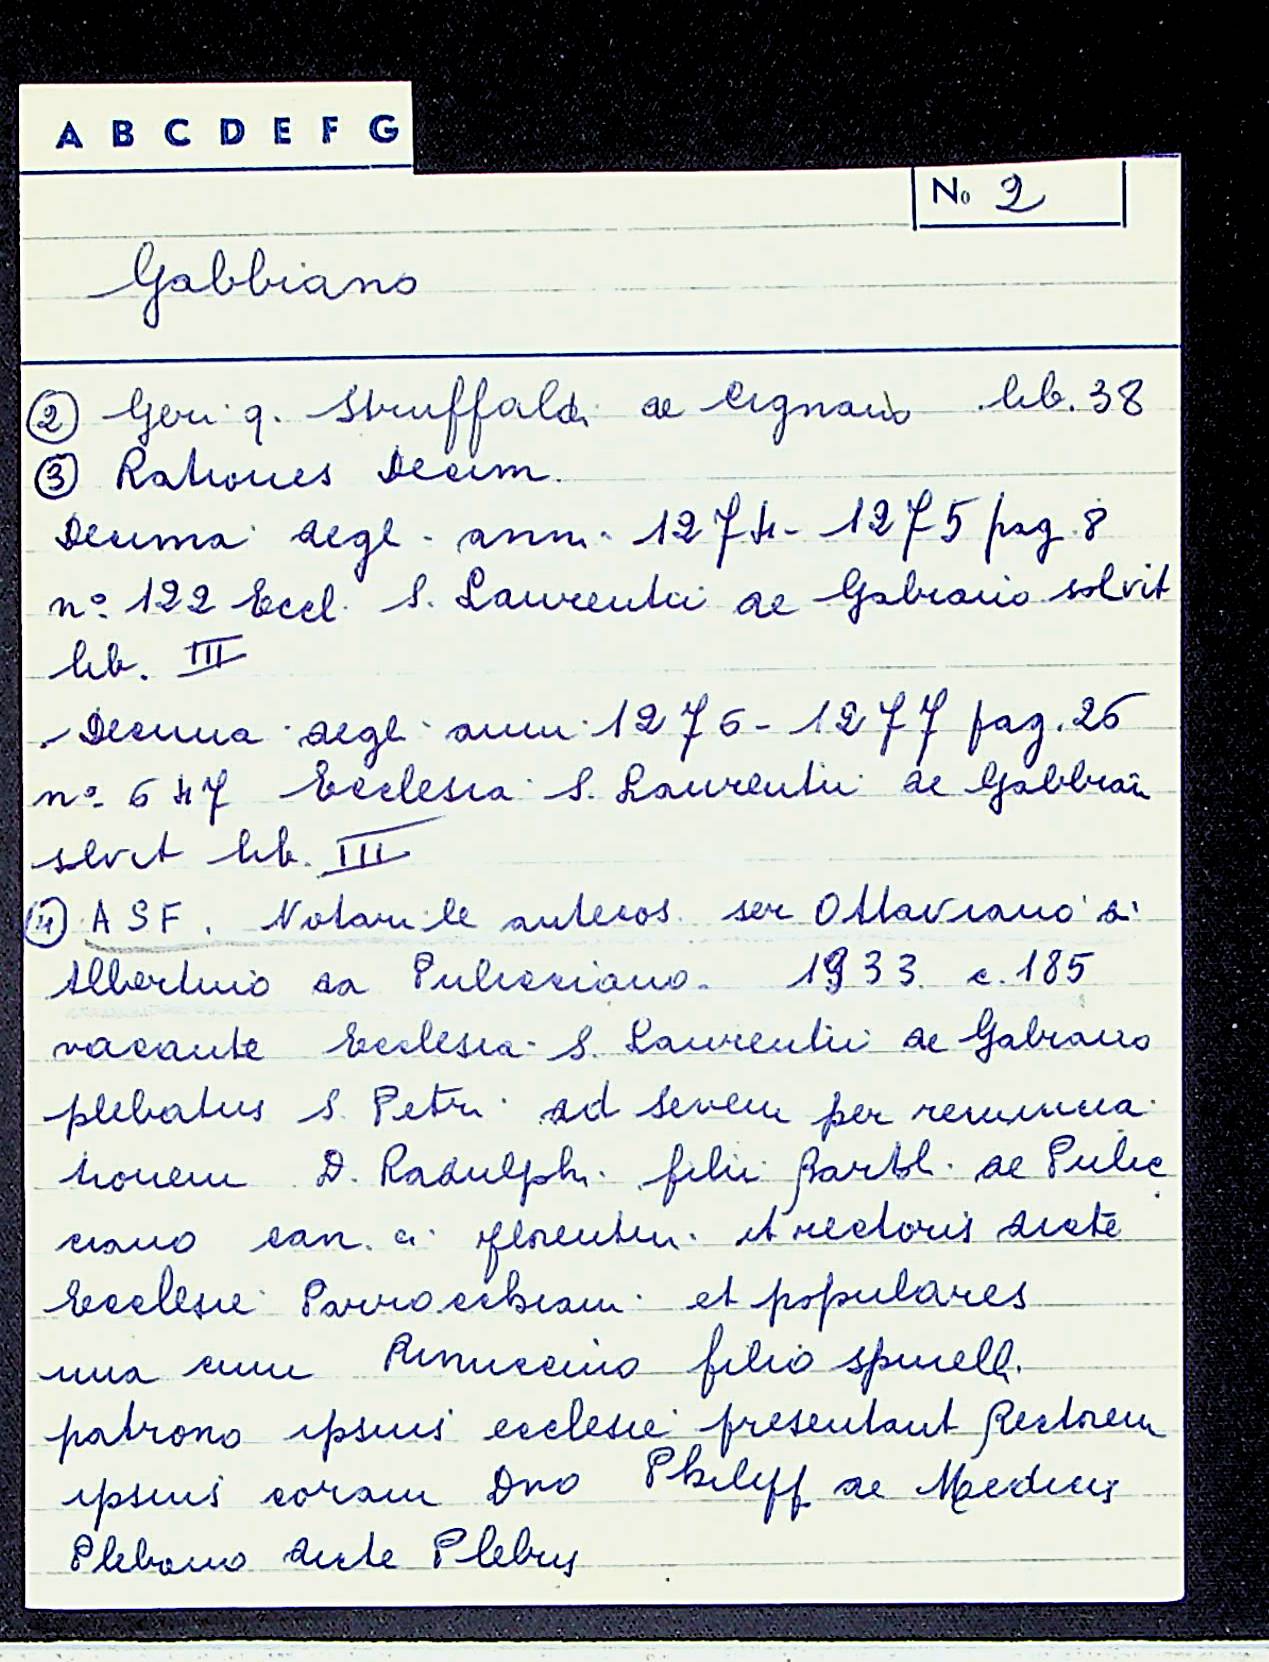 A B C D E F G
No 2
Gabbiano
② Geri q. Struffaldi de Cignano lib. 38
③ Rationes Decim.
Decima degli anni 1274-1275 pag. 8
nº 122 Eccl. S. Laurentii de Gabiano solvit
lib. III
Decima degli anni 1276-1277 pag. 26
nº 647 Ecclesia S. Laurentii de Gabbiāi
solvit lib. III
④ ASF. Notarile antecos. ser Ottaviano di
Albertino da Puliciano. 1933. c. 185
vacante Ecclesia S. Laurentii de Gabiano
plebatus S. Petri ad Sevem per renuncia
tionem D. Radulphi filii Bartol. de Pulic
ciano can. ci florentin. et rectoris dicte
Ecclesie Parrocchiani et populares
una cum Rinuccino filio Spinell.
patrono ipsius ecclesie presentant Rectorem
ipsius coram Dno Philipp de Medicis
Plebano dicte Plebis